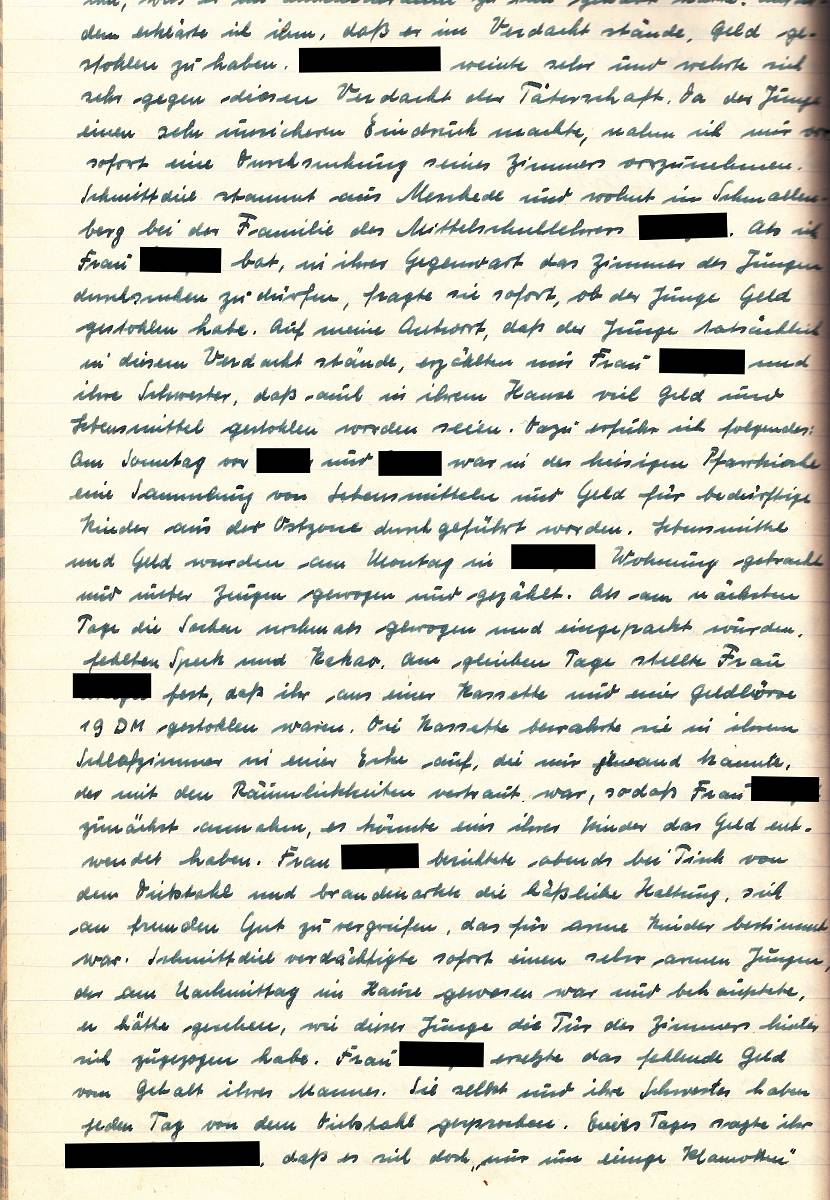 dem erklärte ich ihm, daß er im Verdacht stände, Geld ge-
stohlen zu haben. weinte sehr und wehrte sich
sehr gegen diesen Verdacht der Täterschaft. Da der Junge
einen sehr unsicheren Eindruck machte, nahm ich mir vor
sofort eine Durchsuchung seines Zimmers vorzunehmen.
Schmittdiel stammt aus Meschede und wohnt in Schmallen-
berg bei der Familie des Mittelschullehrers . Als ich
Frau bat, in ihrer Gegenwart das Zimmer des Jungen
durchsuchen zu dürfen, fragte sie sofort, ob der Junge Geld
gestohlen habe. Auf meine Antwort, daß der Junge tatsächlich
in diesem Verdacht stände, erzählten mir Frau und
ihre Schwester, daß auch in ihrem Hause viel Geld und
Lebensmittel gestohlen worden seien. Dazu erfuhr ich folgendes:
Am Sonntag vor und war in der hiesigen Pfarrkirche
eine Sammlung von Lebensmitteln und Geld für bedürftige
Kinder aus der Ostzone durchgeführt worden. Lebensmittel
und Geld wurden am Montag in Wohnung gebracht
und unter Zeugen gewogen und gezählt. Als am nächsten
Tage die Sachen nochmals gewogen und eingepackt wurden,
fehlten Speck und Kakao. Am gleichen Tage stellte Frau
fest, daß ihr aus einer Kassette und einer Geldbörse
19 DM gestohlen waren. Die Kassette bewahrte sie in ihrem
Schlafzimmer in einer Ecke auf, die nur jemand kannte,
der mit den Räumlichkeiten vertraut war, sodaß Frau
zunächst annahm, es könnte eins ihrer Kinder das Geld ent-
wendet haben. Frau berichtete abends bei Tisch von
dem Diebstahl und brandmarkte die häßliche Haltung, sich
an fremden Gut zu vergreifen, das für arme Kinder bestimmt
war. Schmittdiel verdächtigte sofort einen sehr armen Jungen,
der am Nachmittag im Hause gewesen war und behauptete,
er hätte gesehen, wie dieser Junge die Tür des Zimmers hinter
sich zugezogen habe. Frau ersetzte das fehlende Geld
vom Gehalt ihres Mannes. Sie selbst und ihre Schwester haben
jeden Tag von dem Diebstahl gesprochen. Eines Tages sagte ihr
, daß es sich doch „nur um einige Klamotten"